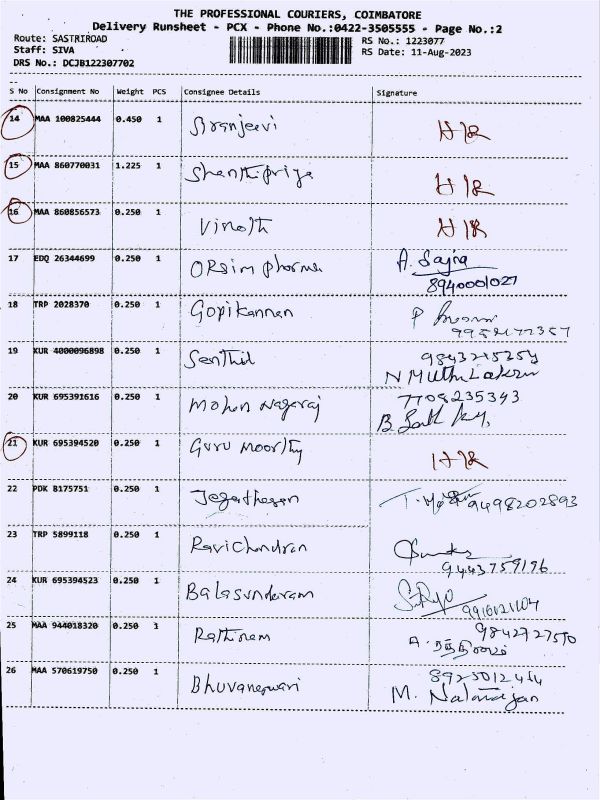 THE PROFESSIONAL COURIERS, COIMBATORE
Delivery Runsheet - PCX - Phone No.:0422-3505555 - Page No.:2
Route: SASTRIROAD
RS No.: 1223077
Staff: SIVA
RS Date: 11-Aug-2023
DRS No.: DCJB122307702
S No Consignment No Weight PCS Consignee Details Signature
14 MAA 100825444 0.450 1 Siranjeevi HR
15 MAA 860770031 1.225 1 Shanthipriya HR
16 MAA 860856573 0.250 1 Vinoth HR
17 EDQ 26344699 0.250 1 ORsim pharma A. Sajna
8940001027
18 TRP 2028370 0.250 1 Gopikannan P
19 KUR 4000096898 0.250 1 Senthil 9843215254
N Muthu Lakshmi
20 KUR 695391616 0.250 1 Mohan Nagaraj 7708235343
B.
21 KUR 695394520 0.250 1 Guru Moorthy HR
22 PDK 8175751 0.250 1 Jegatheesan T. 9498202893
23 TRP 5899118 0.250 1 Ravichandran
9443759196
24 KUR 695394523 0.250 1 Balasundaram
25 MAA 944018320 0.250 1 Rathinam 9842727550
A. ரத்தினம்
26 MAA 570619750 0.250 1 Bhuvaneswari
M. Natarajan